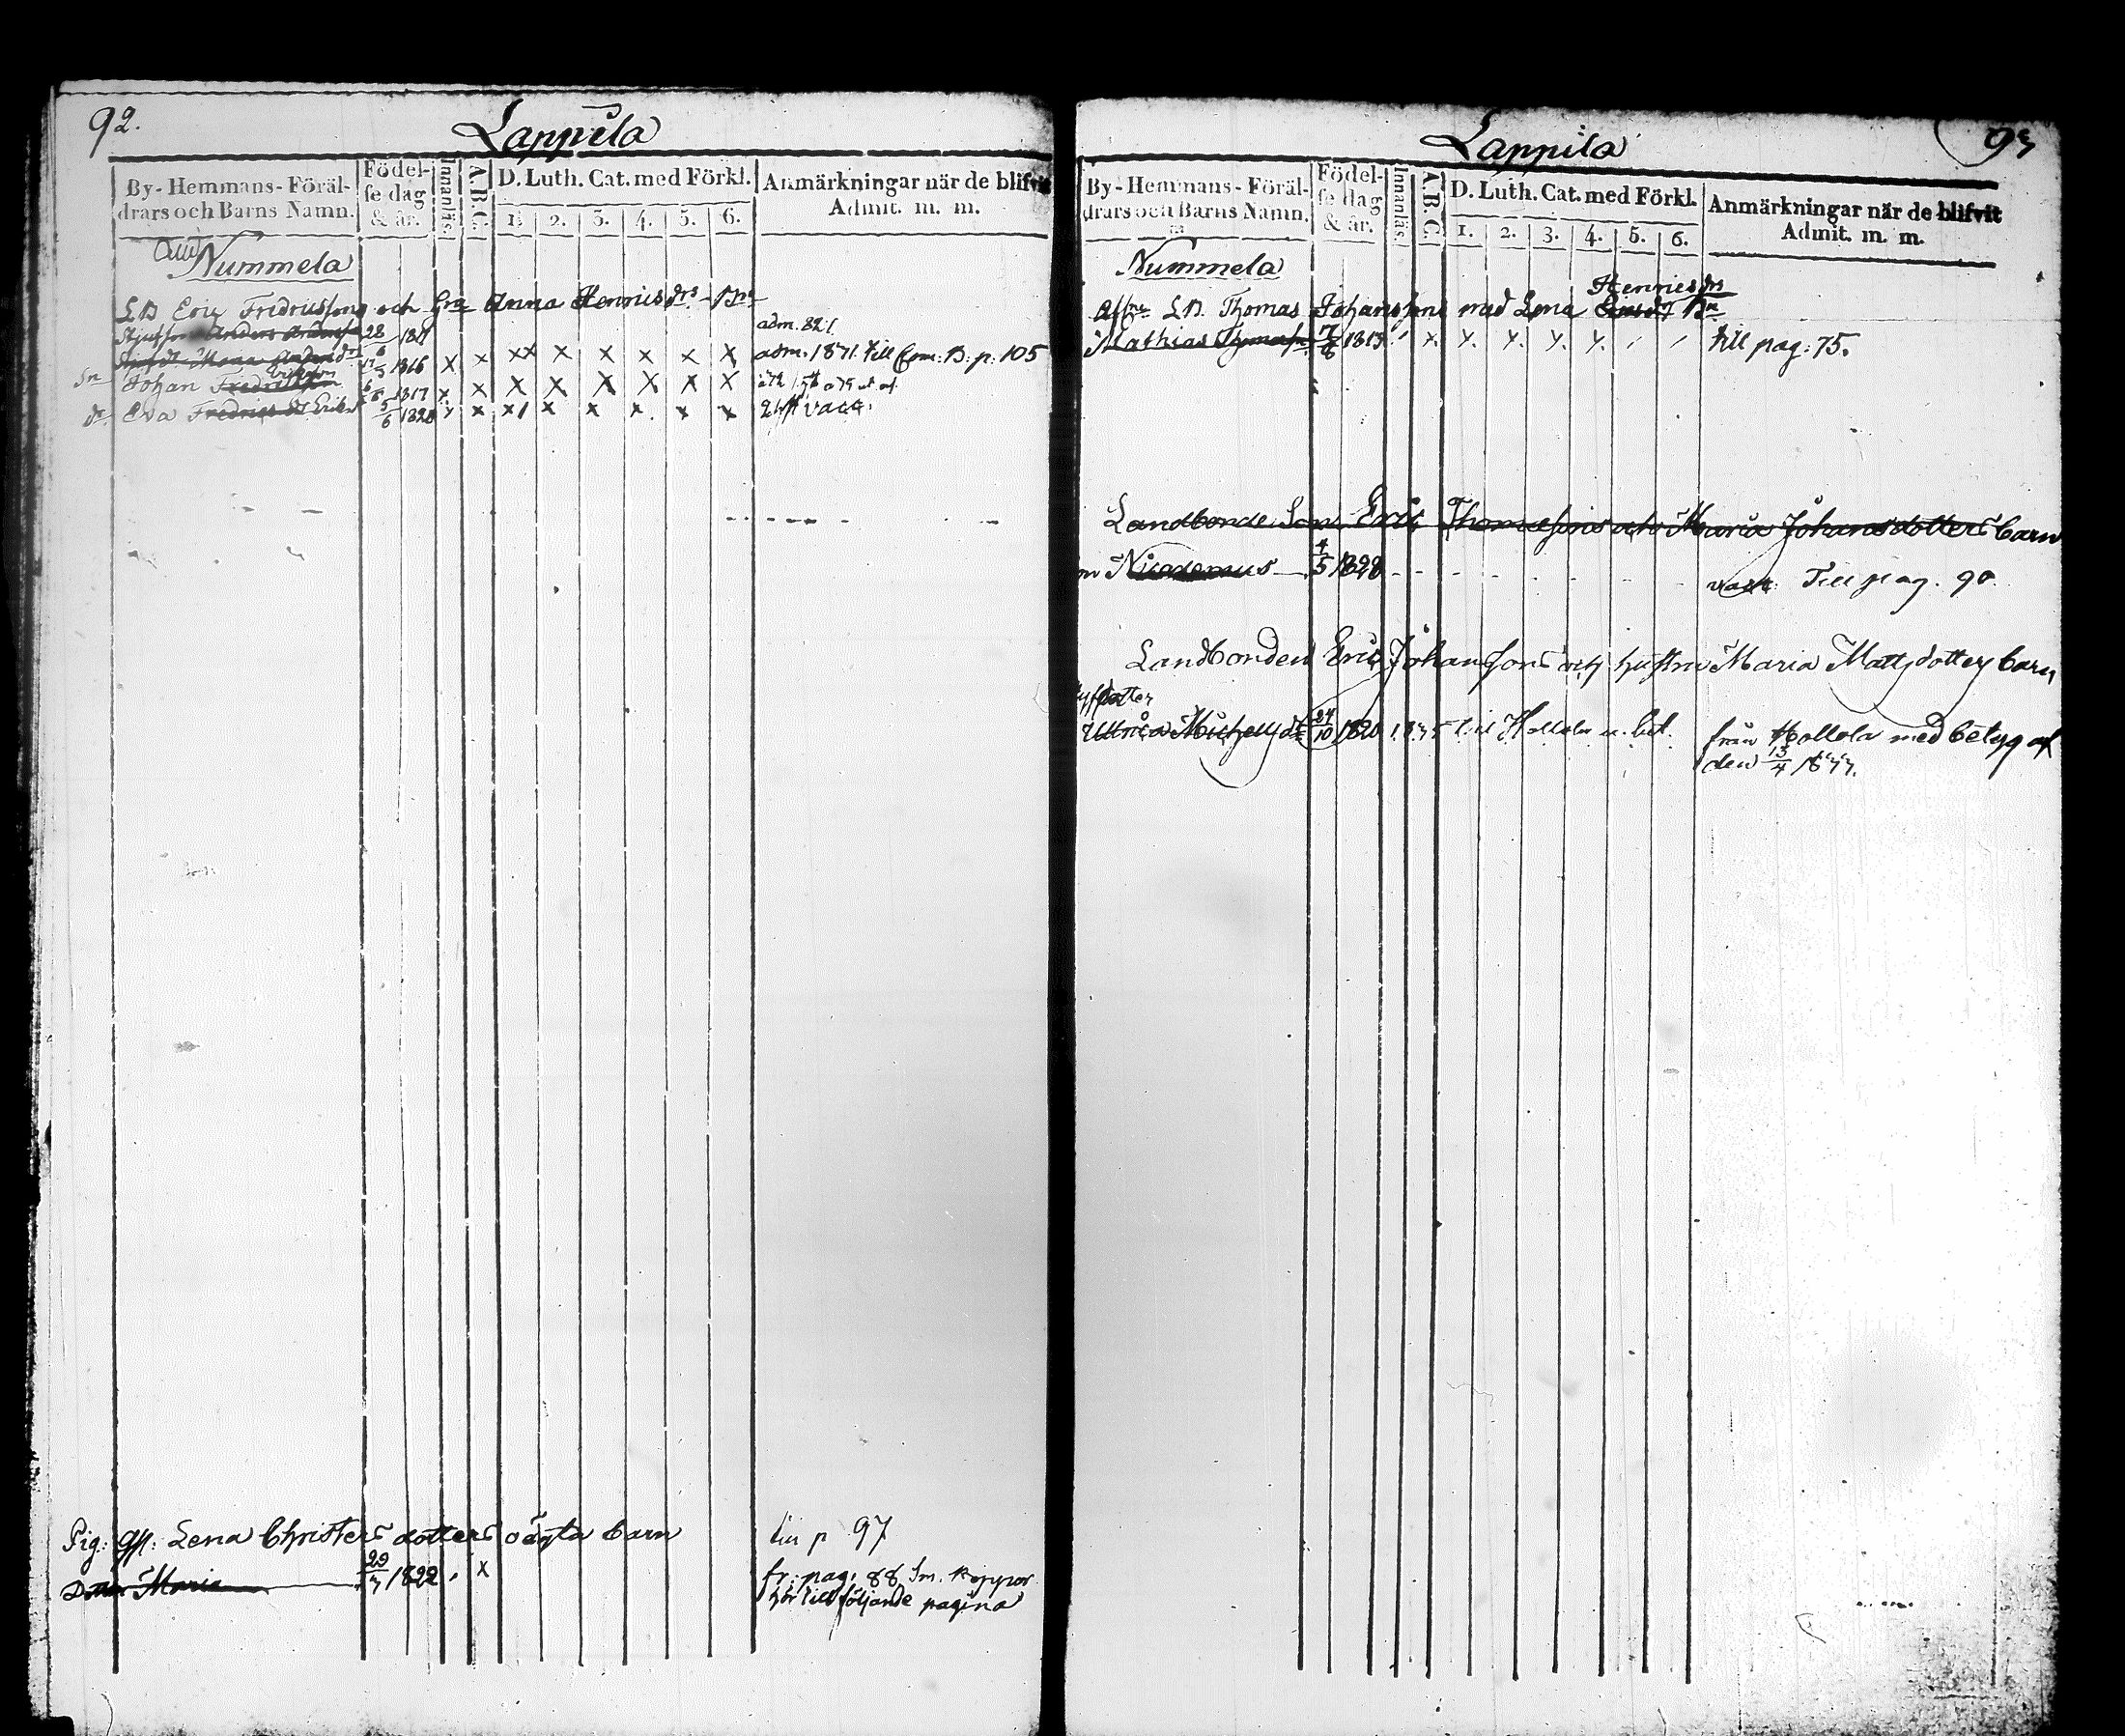 92.
Lappila
By-Hemmans-Föräl-
drars och Barns Namn.
Födel-
se dag
& år.
Innanläs.
A.B.C.
D. Luth. Cat. med Förkl.
1. 2. 3. 4. 5. 6.
Anmärkningar när de blifvit
Admit. m. m.
Nummela
LB Eric Fredricssons och Anna Henricsdrs Brn
28 1811 adm. 821.
17/5 1816 x x xx x x x x x adm. 1831. till Com: B: p: 105
Sn Johan Fredricsson Ericsson 6/6 1817 x x x x x x x x
Dr. Eva Fredrics dr Erics 5/6 1820 x x x1 x x x. x x vacc.
Pig: Lena Christersdotters oägta barn till p 97
Dotter Maria 29/7 1822 x fr: pag: 88 Sm. koppor
hör till följande pagina
93
Lappila
By-Hemmans-Föräl-
drars och Barns Namn.
Födel-
se dag
& år.
Innanläs.
A.B.C.
D. Luth. Cat. med Förkl.
1. 2. 3. 4. 5. 6.
Anmärkningar när de blifvit
Admit. m. m.
Nummela
Henricsdrs
LB. Thomas Johanssons med Lena Ericsdr Bn
Mathias Thomass. 7/8 1813 x. till pag: 75.
Landbonde Son Eric Thomassons och Maria Johansdotters barn
Nicodemus 4/5 1828 vacc: Till pag. 90.
Landbonden Eric Johanssons och hustru Maria Mattsdotters barn
dotter
Ulrica Michelsdr 24/10 1820 1835 till Hollola m. bet. från Hollola med betyg af
den 13/4 1833.